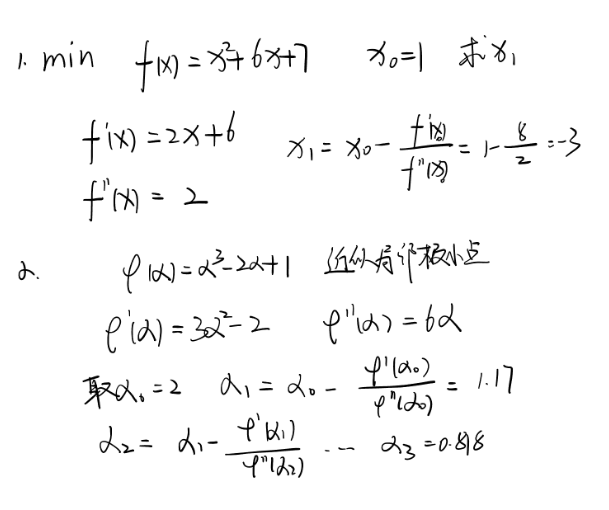 1. min f(x)=x²+6x+7 x₀=1 求x₁
f'(x)=2x+6 x₁=x₀-f'(x₀)/f''(x₀)=1-8/2=-3
f''(x)=2
2. φ(α)=α³-2α+1 近似局部极小点
φ'(α)=3α²-2 φ''(α)=6α
取α₀=2 α₁=α₀-φ'(α₀)/φ''(α₀)=1.17
α₂=α₁-φ'(α₁)/φ''(α₂) ... α₃=0.818